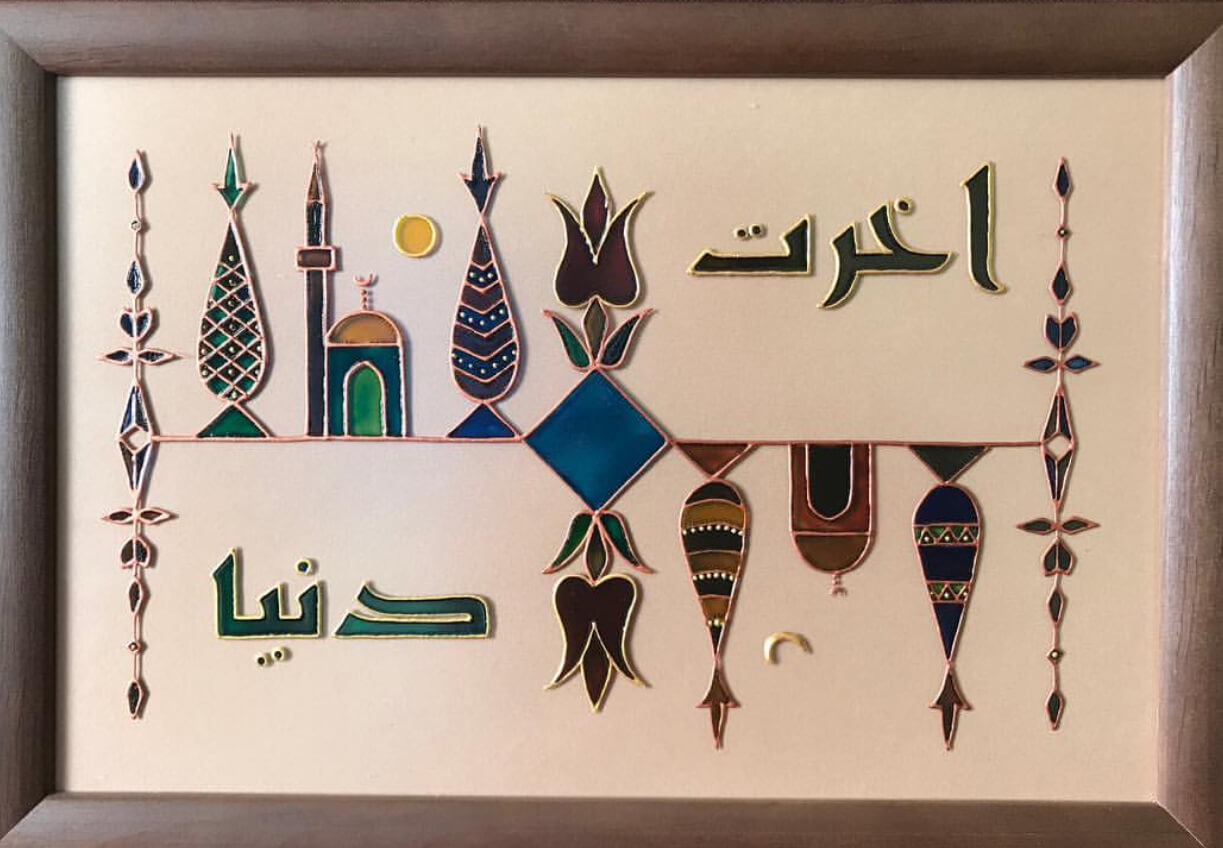 اخرت
دنيا